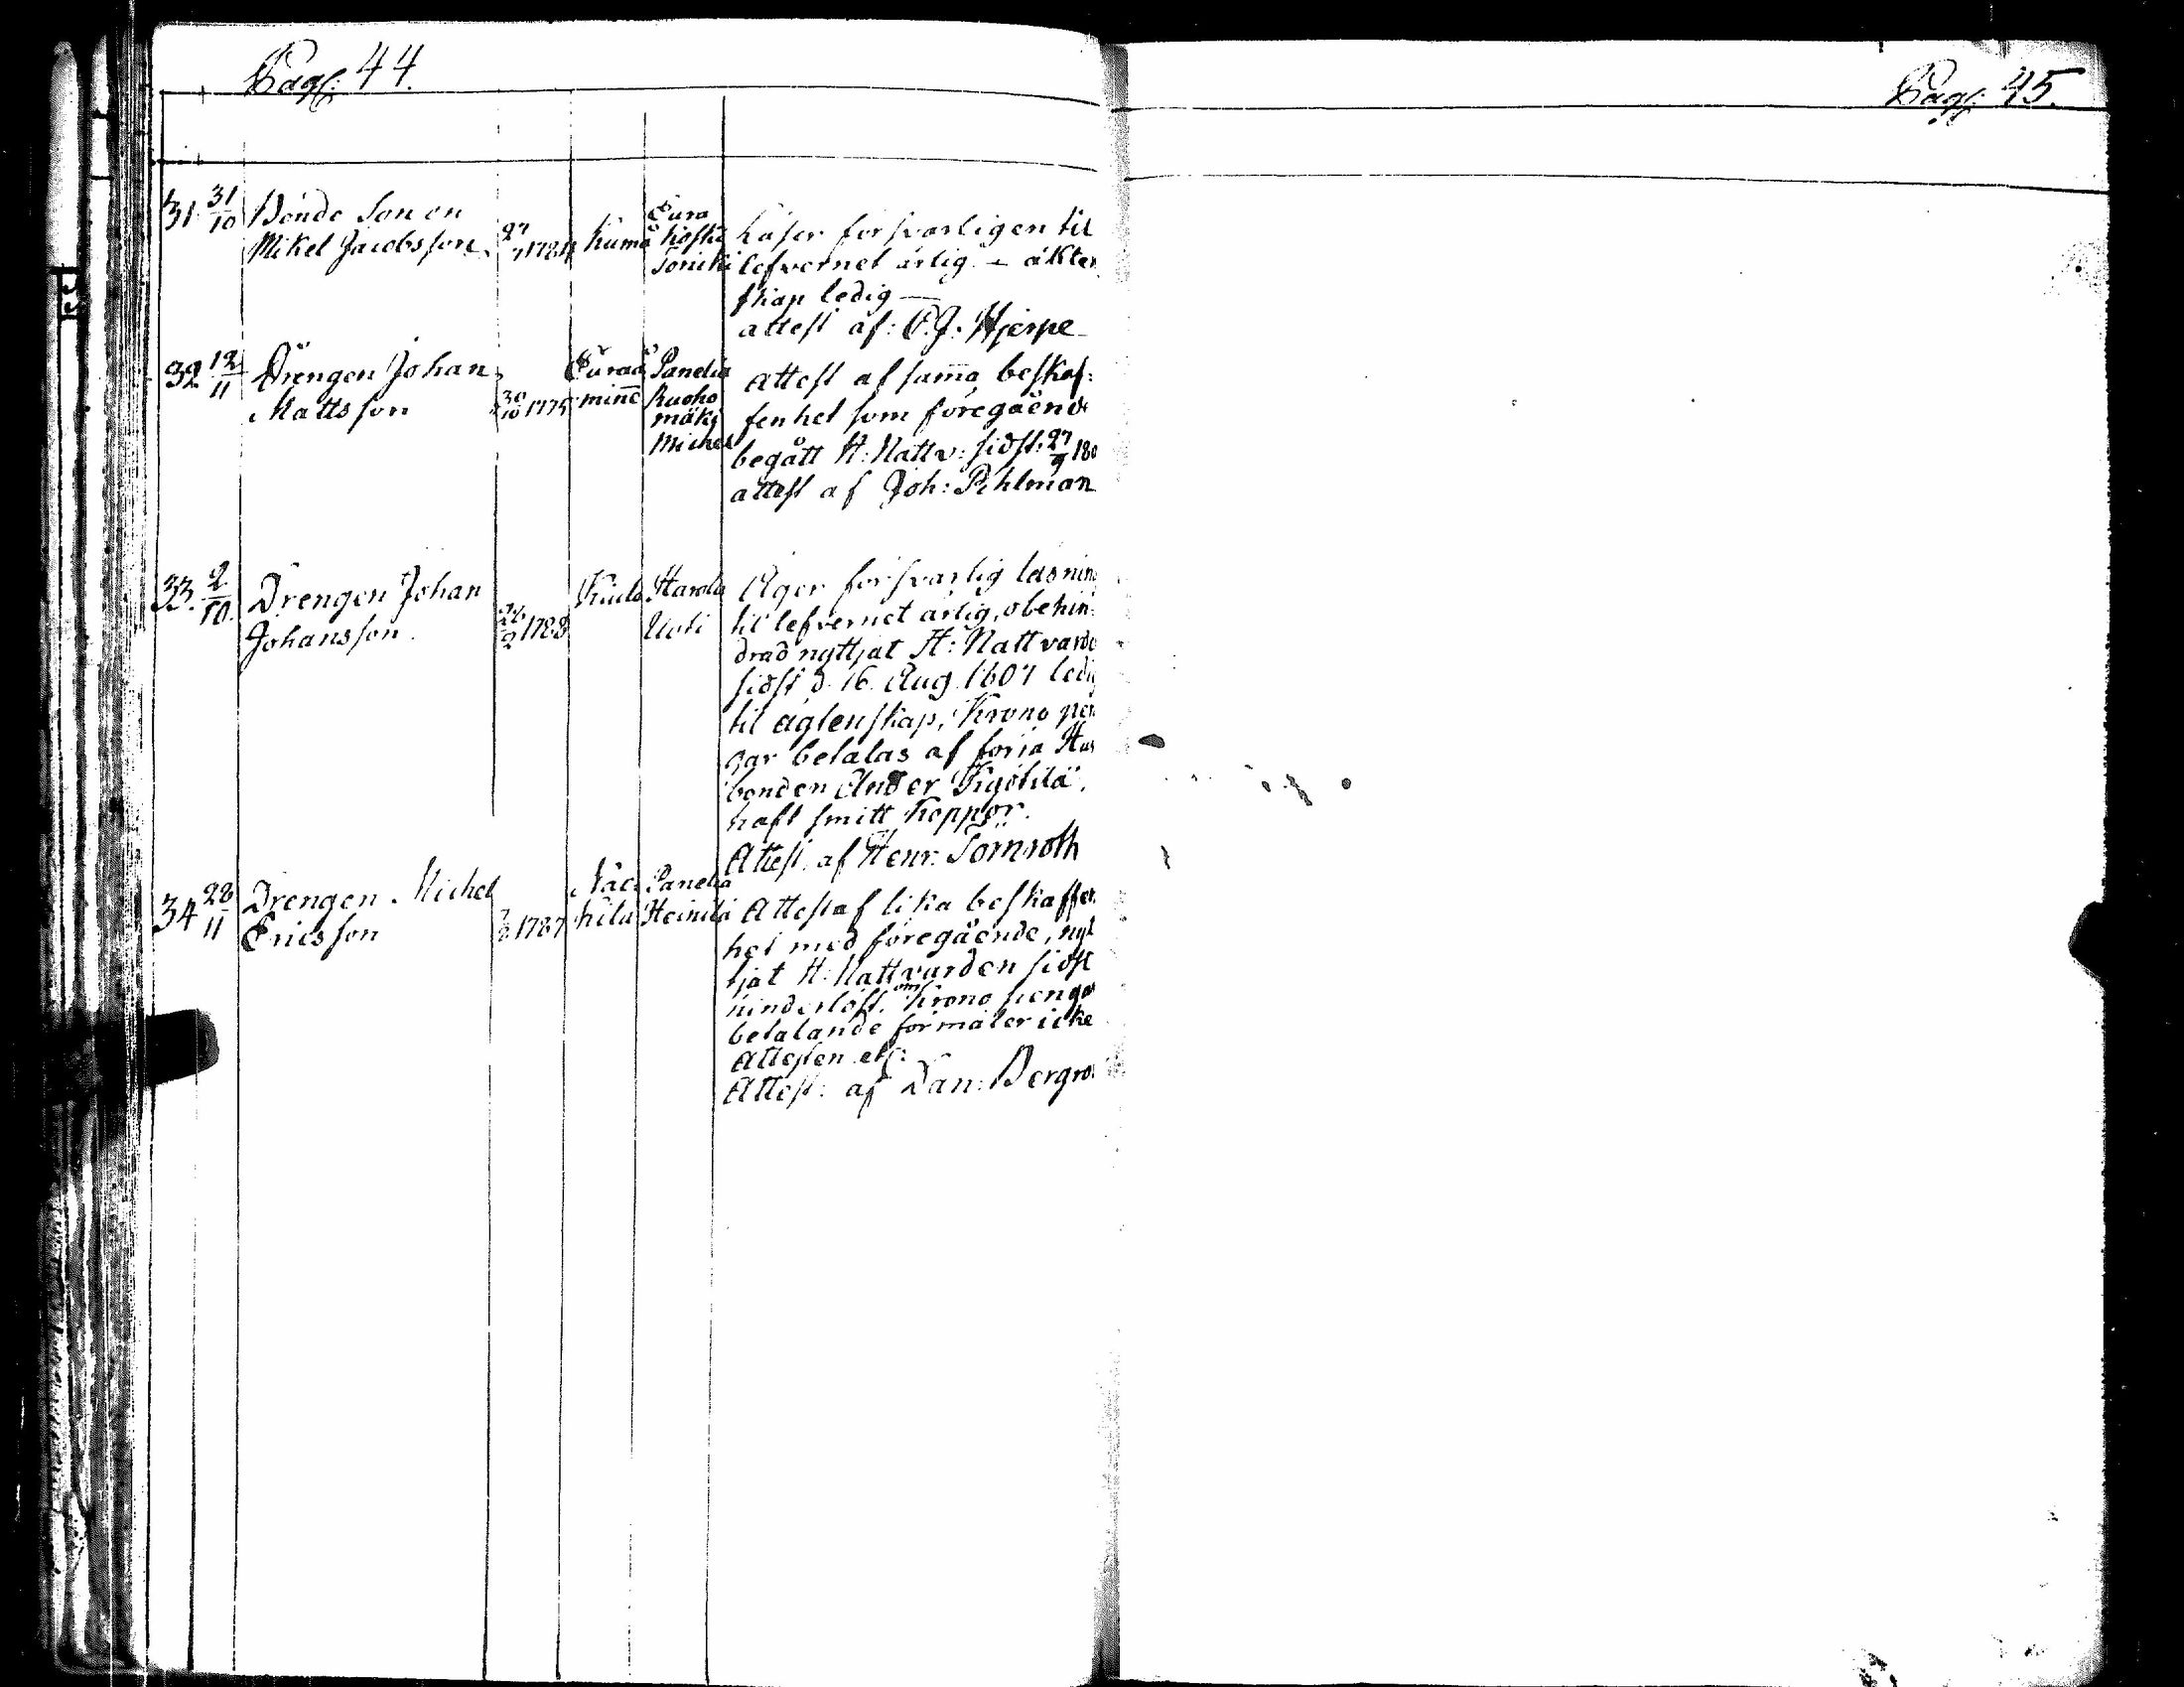 Pag: 44.
Pag: 45.
31. 31/10 Bonde Sonen
Mikel Jacobsson 27/7 1784 Kumå
Eura
Koski
Toniki
Läser försvarligen til
lefvernet ärlig – äkten
skap ledig —
attest af: C. J. Hjerpe
32 12/11 Drengen Johan
Mattsson 30/10 1775
Euraå
mine
Panelia
Ruoho
mäki
Michel
Attest af samma beskaf:
fenhet som föregående
begått H: Nattv: sidst: 27/9 180
attest af Joh: Pihlman
33. 2/10. Drengen Johan
Johansson. 1788
Kiulo
Harola
Uoti
Äger försvarlig läsning
til lefvernet ärlig, obehin:
drad nyttjat H: Nattvarde
sidst d. 16. Aug. 1807 ledig
til ägtenskap, Krono pen
gar betalas af förra Hus
bonden Ander
haft smitt koppor.
Attest. af Henr: Törnroth
34 28/11 Drengen Michel
Ericsson 1787
Näc
kilu
Panelia
Heinilä
Attest af lika beskaffen
het med föregående, nytt
jat H: Nattvarden sidst
hinderlöst. om Krono penga
betalande förmäler icke
Attesten etc:
Attest: af Dan: Bergro